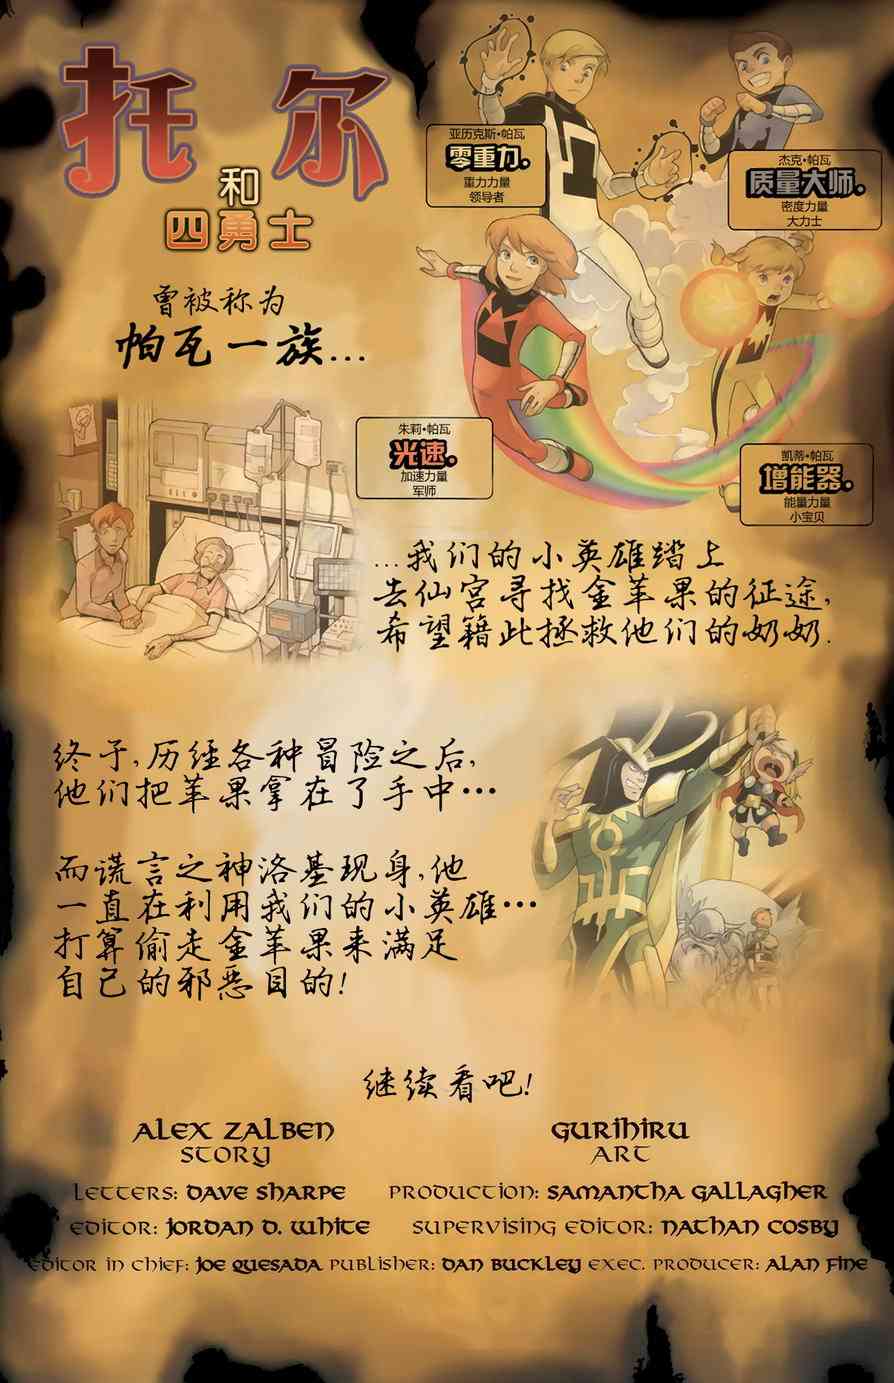 托 尔
和
四勇士
曾被称为
帕瓦一族...
亚历克斯•帕瓦
零重力。
重力力量
领导者
杰克•帕瓦
质量大师。
密度力量
大力士
朱莉•帕瓦
光速。
加速力量
军师
凯蒂•帕瓦
增能器。
能量力量
小宝贝
...我们的小英雄踏上
去仙宫寻找金苹果的征途,
希望籍此拯救他们的奶奶.
终于,历经各种冒险之后,
他们把苹果拿在了手中…
而谎言之神洛基现身,他
一直在利用我们的小英雄…
打算偷走金苹果来满足
自己的邪恶目的!
继续看吧!
ALEX ZALBEN
STORY
GURIHIRU
ART
LETTERS: DAVE SHARPE PRODUCTION: SAMANTHA GALLAGHER
EDITOR: JORDAN D. WHITE SUPERVISING EDITOR: NATHAN COSBY
EDITOR IN CHIEF: JOE QUESADA PUBLISHER: DAN BUCKLEY EXEC. PRODUCER: ALAN FINE